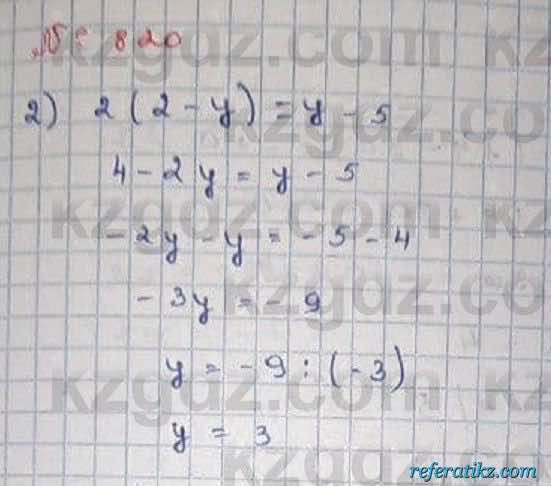 № 820
2) 2(2 - y) = y - 5
4 - 2y = y - 5
-2y - y = -5 - 4
-3y = -9
y = -9 : (-3)
y = 3
kzgdz.com
referatikz.com